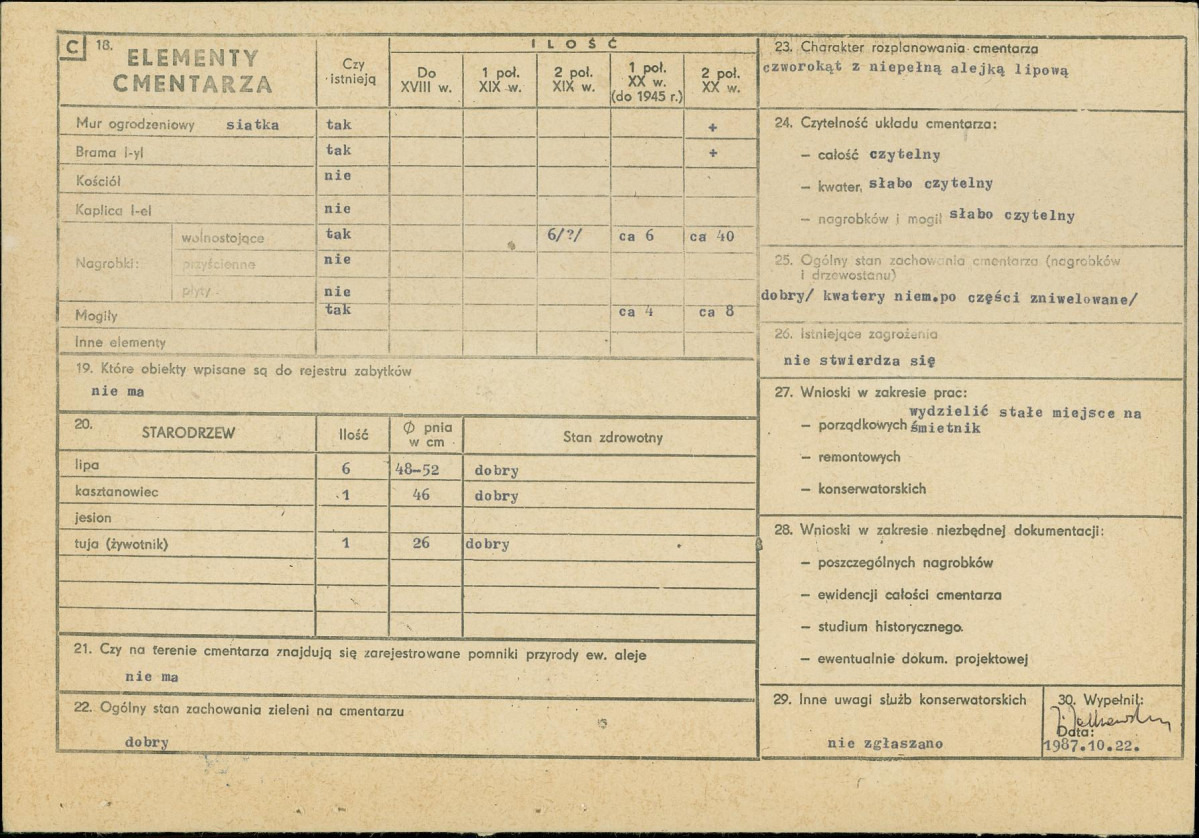 C 18. ELEMENTY CMENTARZA
Czy istnieją
ILOŚĆ
Do XVIII w.
1 poł. XIX w.
2 poł. XIX w.
1 poł. XX w. (do 1945 r.)
2 poł. XX w.
Mur ogrodzeniowy siatka tak +
Brama I-yl tak +
Kościół nie
Kaplica I-el nie
Nagrobki:
wolnostojące tak 6/?/ ca 6 ca 40
przyścienne nie
płyty nie
Mogiły tak ca 4 ca 8
Inne elementy
19. Które obiekty wpisane są do rejestru zabytków
nie ma
20. STARODRZEW Ilość Ø pnia w cm Stan zdrowotny
lipa 6 48-52 dobry
kasztanowiec 1 46 dobry
jesion
tuja (żywotnik) 1 26 dobry
21. Czy na terenie cmentarza znajdują się zarejestrowane pomniki przyrody ew. aleje
nie ma
22. Ogólny stan zachowania zieleni na cmentarzu
dobry
23. Charakter rozplanowania cmentarza
czworokąt z niepełną alejką lipową
24. Czytelność układu cmentarza:
— całość czytelny
— kwater, słabo czytelny
— nagrobków i mogił słabo czytelny
25. Ogólny stan zachowania cmentarza (nagrobków
i drzewostanu)
dobry/ kwatery niem.po części zniwelowane/
26. Istniejące zagrożenia
nie stwierdza się
27. Wnioski w zakresie prac:
wydzielić stałe miejsce na
— porządkowych śmietnik
— remontowych
— konserwatorskich
28. Wnioski w zakresie niezbędnej dokumentacji:
— poszczególnych nagrobków
— ewidencji całości cmentarza
— studium historycznego.
— ewentualnie dokum. projektowej
29. Inne uwagi służb konserwatorskich
nie zgłaszano
30. Wypełnił:
Data:
1987.10.22.